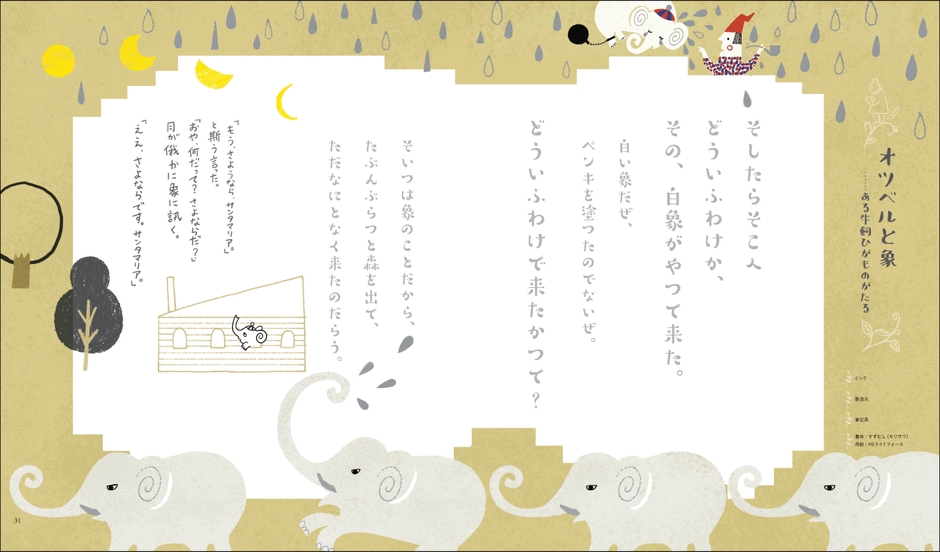 オツベルと象
……ある牛飼ひがものがたる
インク
製造元
筆記具
書体:すずむし(モリサワ)
用紙:HSライトフォース
そしたらそこへ
どういふわけか、
その、白象がやつて来た。
白い象だぜ、
ペンキを塗つたのでないぜ。
どういふわけで来たかつて?
そいつは象のことだから、
たぶんぶらつと森を出て、
ただなにとなく来たのだらう。
「もう、さようなら、サンタマリア。」
と斯う言った。
「おや、何だって?さよならだ?」
月が俄かに象に訊く。
「ええ、さよならです。サンタマリア。」
31